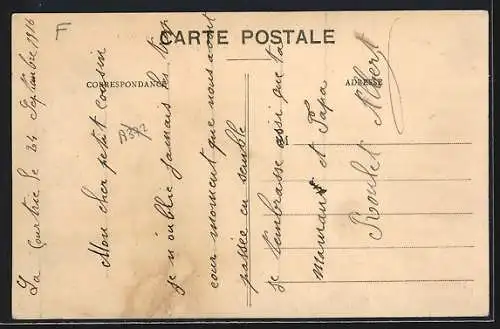 F
CARTE POSTALE
CORRESPONDANCE
ADRESSE
La Courtine le 24 Septembre 1916
Mon cher petit cousin
je n'oublie jamais les
cour moment que nous avont
passée en semble
je t'embrasse assi que ta
maman et Papa
Roulet Albert